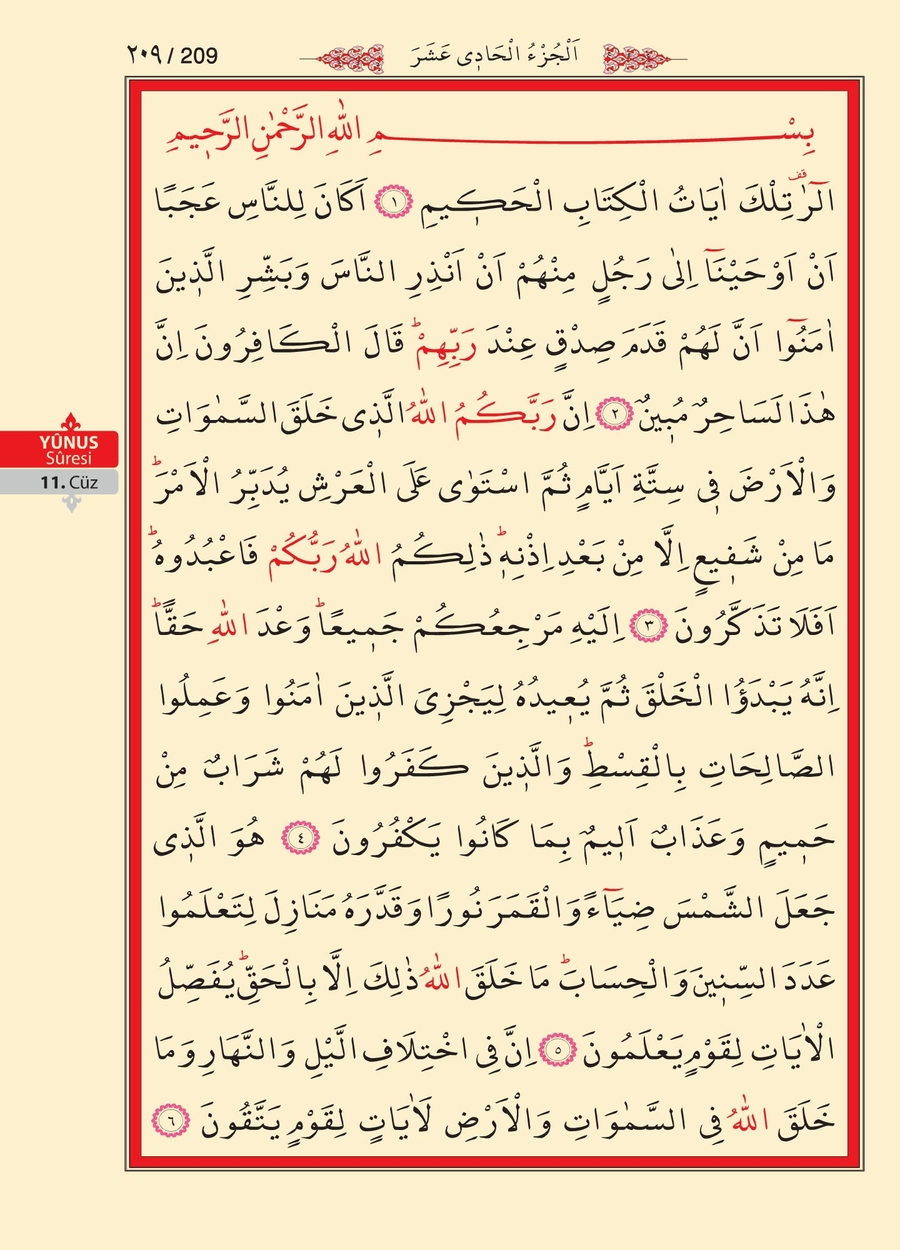 ٢٠٩ / 209
اَلْجُزْءُ الْحَادِى عَشَرَ
بِسْمِ اللّٰهِ الرَّحْمٰنِ الرَّحٖيمِ
الٓرٰ ࣞ تِلْكَ اٰيَاتُ الْكِتَابِ الْحَكٖيمِ ١ اَكَانَ لِلنَّاسِ عَجَبًا
اَنْ اَوْحَيْنَٓا اِلٰى رَجُلٍ مِنْهُمْ اَنْ اَنْذِرِ النَّاسَ وَبَشِّرِ الَّذٖينَ
اٰمَنُٓوا اَنَّ لَهُمْ قَدَمَ صِدْقٍ عِنْدَ رَبِّهِمْؕ قَالَ الْكَافِرُونَ اِنَّ
هٰذَا لَسَاحِرٌ مُبٖينٌ ٢ اِنَّ رَبَّكُمُ اللّٰهُ الَّذٖى خَلَقَ السَّمٰوَاتِ
وَالْاَرْضَ فٖى سِتَّةِ اَيَّامٍ ثُمَّ اسْتَوٰى عَلَى الْعَرْشِ يُدَبِّرُ الْاَمْرَؕ
مَا مِنْ شَفٖيعٍ اِلَّا مِنْ بَعْدِ اِذْنِهٖؕ ذٰلِكُمُ اللّٰهُ رَبُّكُمْ فَاعْبُدُوهُؕ
اَفَلَا تَذَكَّرُونَ ٣ اِلَيْهِ مَرْجِعُكُمْ جَمٖيعًاؕ وَعْدَ اللّٰهِ حَقًّاؕ
اِنَّهُ يَبْدَؤُا الْخَلْقَ ثُمَّ يُعٖيدُهُ لِيَجْزِىَ الَّذٖينَ اٰمَنُوا وَعَمِلُوا
الصَّالِحَاتِ بِالْقِسْطِؕ وَالَّذٖينَ كَفَرُوا لَهُمْ شَرَابٌ مِنْ
حَمٖيمٍ وَعَذَابٌ اَلٖيمٌ بِمَا كَانُوا يَكْفُرُونَ ٤ هُوَ الَّذٖى
جَعَلَ الشَّمْسَ ضِيَٓاءً وَالْقَمَرَ نُورًا وَقَدَّرَهُ مَنَازِلَ لِتَعْلَمُوا
عَدَدَ السِّنٖينَ وَالْحِسَابَؕ مَا خَلَقَ اللّٰهُ ذٰلِكَ اِلَّا بِالْحَقِّؕ يُفَصِّلُ
الْاٰيَاتِ لِقَوْمٍ يَعْلَمُونَ ٥ اِنَّ فٖى اخْتِلَافِ الَّيْلِ وَالنَّهَارِ وَمَا
خَلَقَ اللّٰهُ فِى السَّمٰوَاتِ وَالْاَرْضِ لَاٰيَاتٍ لِقَوْمٍ يَتَّقُونَ ٦
YÛNUS
Sûresi
11. Cüz